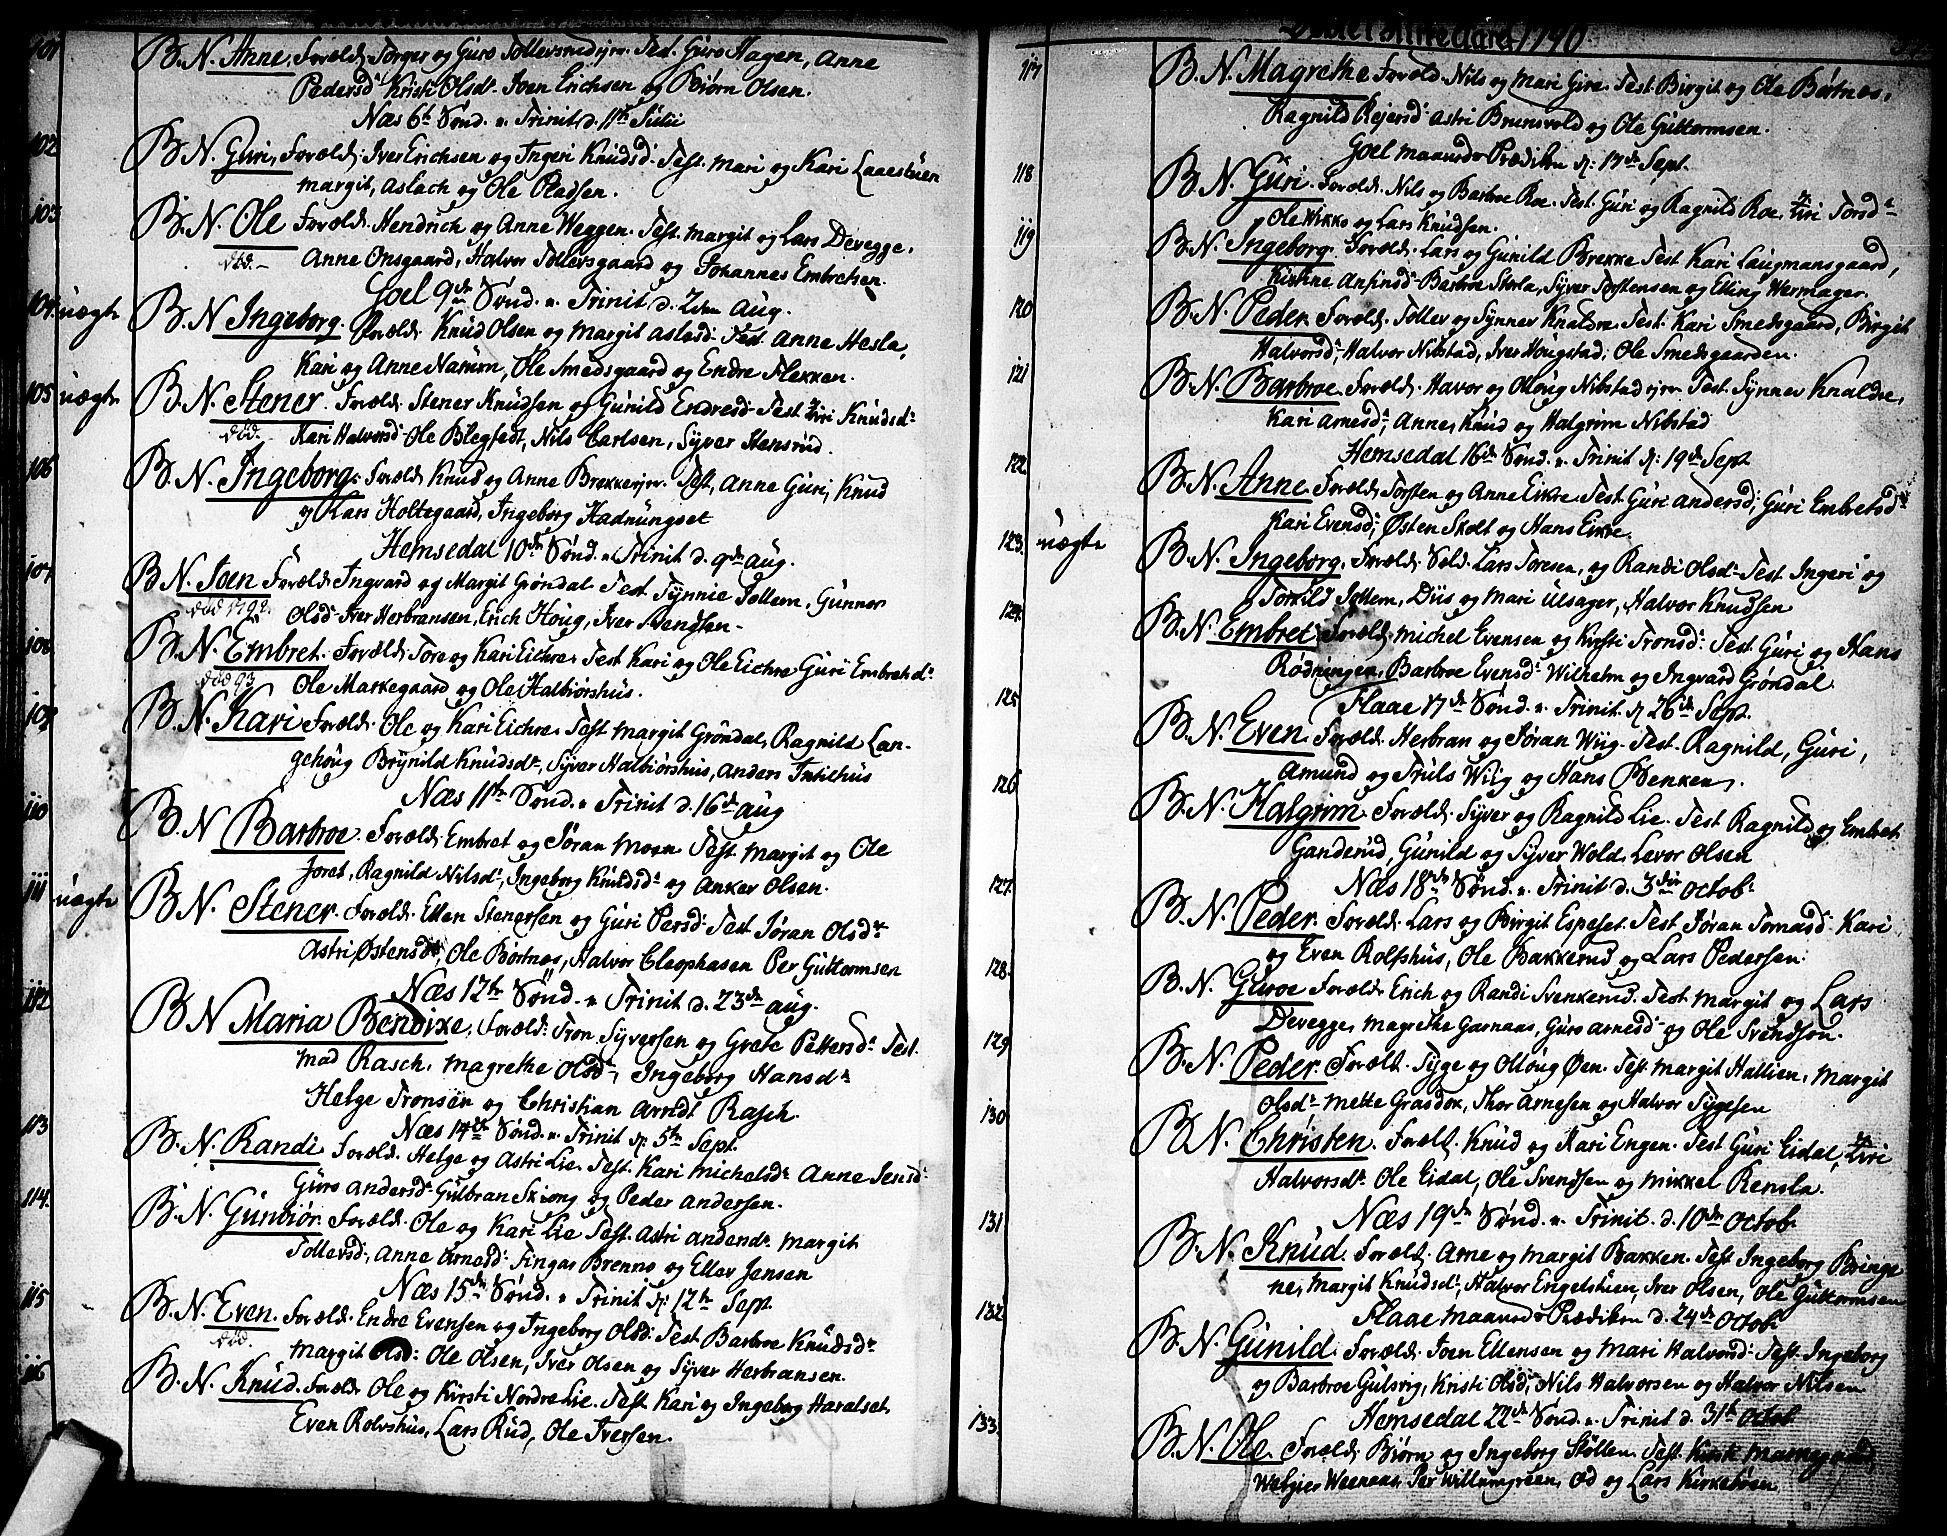 101 B. N. Anne. Foræld: Torger og Guro Tollersrud Test. Guro Hagen, Anne
Pedersd: Kristi Olsdr. Joen Erichsen og Biørn Olsen.
Næs 6te Sønd. Trinit. d. 11te Julii
102 B. N. Guri. Foræld: Iver Erichsen og Ingeri Knudsd: Test. Mari og Kari Laaestuen
Margit, Aslach og Ole Pladsen.
103 B. N. Ole Foræld: Hendrich og Anne Weggen. Test. Margit og Lars Devegge,
død.- Anne Onsgaard, Halvor Tollersgaard og Johannes Embretsen.
Goel 9de Sønd. Trinit d. 2den Aug.
104 uægte B. N Ingeborg. Foræld: Knud Olsen og Margit Aslesd: Test. Anne Hesla,
Kari og Anne Narum, Ole Smedsgaard og Endre Flekken.
105 uægte B. N. Stener. Foræld: Stener Knudsen og Gunild Endresd: Test Liri Knudsdr
død. Kari Halvorsd: Ole Blegstedt, Nils Carlsen, Syver Stensrud.
106 B. N. Ingeborg. Foræld: Knud og Anne Brekke Test, Anne Guri, Knud
og Kari Holtegaard, Ingeborg Hadnungset
Hemsedal 10de Sønd. Trinit d. 9de aug.
107 B N. Joen Foræld: Ingvard og Margit Grøndal Test Synnie Jollem, Gunner
død 1792. Olsd: Iver Herbransen, Erich Houg, Iver Svendsen.
108 B. N. Embret. Foræld: Tore og Kari Eichre Test Kari og Ole Eichre Guri Embretsdr.
død 93 Ole Markegaard og Ole Halbiørshus.
109 B. N. Kari Foræld: Ole og Kari Eichre. Test Margit Grøndal, Ragnild Lan-
gehoug Brynild Knudsdr, Syver Halbiørshus, Anders Intelhus
Næs 11te Sønd. Trinit d. 16de aug
110 B. N Barbroe. Foræld: Embret og Jøran Moen Test. Margit og Ole
Joret, Ragnild Nilsdr, Ingeborg Knudsdr og Anker Olsen.
111 uægte B N. Stener. Foræld: Ellen Stenersen og Guri Persd: Test Jøran Olsdr
Astri Østensdr, Ole Børtnes, Halvor Cleophasen Per Guttormsen
Næs 12te Sønd. Trinit d. 23de aug.
112 B N Maria Bendixe. Foræld: Tron Syversen og Grete Pettersdr Test.
Mad Rasch, Magrethe Olsdr, Ingeborg Hansdr
Helge Tronsen og Christian Arndt Rasch.
Næs 14de Sønd. Trinit d: 5te Sept.
113 B. N. Randi Foræld. Helge og Astri Lie. Test. Kari Michelsdr Anne Jensd:
Guro Andersd: Gulbran Skiong og Peder Andersen.
114. B. N. Gunbiør. Foræld: Ole og Kari Lie Test. Astri Andersdr. Margit
Tollersd:, Anne Arnesd: Fingas Brenno og Eller Jensen
Næs 15de Sønd. Trinit d: 12te Sept
115 B. N. Even. Foræld. Endre Evensen og Ingeborg Olsd: Test Barbroe Knudsdr
død. Margit Olsd: Ole Olsen, Iver Olsen og Syver Herbransen.
116 B. N. Knud. Foræld: Ole og Kirsti Nordre Lie. Test Kari og Ingeborg Haralset
Even Rolvshus, Lars Rud, Ole Iversen.
1790
117 B. N. Magrethe Foræld. Nils og Mari Gire. Test. Birgit og Ole Børtnes,
Ragnild Rejersd: Astri Brunsvold og Ole Guttormsen.
Goel Maaneds Prædiken d: 17de Sept.
118 B N. Guri. Foræld. Nils og Barbroe Roe. Test. Guri og Ragnild Roe, Liri Torsdr
Ole Wikko og Lars Knudsen.
119 B N. Ingeborg. Foræld. Lars og Gunild Brekke Test Kari Laugmansgaard,
Kirstine Anfinsd: Barbroe Storla, Syver Torstensen og Elling Wermager.
120 B N. Peder. Foræld. Toller og Synnev Knaldre. Test. Kari Smedsgaard, Birgit
Halvorsdr, Halvor Nibstad, Iver Hougstad, Ole Smedsgaarden.
121 B N. Barbroe. Foræld: Havor og Oloug Nibstad Test. Synnev Knaldre,
Kari Arnesd:, Anne, Knud og Halgrim Nibstad
Hemsedal 16de Sønd. Trinit d: 19de Sept
122 B. N. Anne Foræld: Torsten og Anne Eikre Test. Guri Andersd; Guri Embretsdr
Kari Evensd:, Østen Skolt og Hans Eikre.
123. uægte B N. Ingeborg. Foræld: Sold. Lars Toresen, og Randi Olsdr Test. Ingeri og
Torkild Jollem, Diis og Mari Ulsager, Halvor Knudsen
124 B. N. Embret. Foræld. Michel Evensen og Kirsti Tronsd: Test. Guri og Hans
Rødningen, Barbroe Evensdr Wilhelm og Ingvard Grøndal.
Flaae 17de Sønd. Trinit. d: 26de Sept.
125. B N. Even. Foræld. Herbran og Jøran Wiig. Test. Ragnild, Guri,
Amund og Truls Wiig og Hans Benken.
126 B. N. Halgrim Foræld: Syver og Ragnild Lie. Test Ragnild og Embret
Ganderud, Gunild og Syver Wold, Levor Olsen
Næs 18de Sønd. Trinit d. 3die octobr
127. B. N. Peder. Foræld: Lars og Birgit Espeset. Test Jøran Tomasd: Kari
og Even Rolfshus, Ole Bakkerud og Lars Pedersen.
128. B. N. Guroe Foræld: Erich og Randi Svenkerud. Test. Margit og Lars
Devegge, Magrethe Garnaas, Guro Arnesd: og Ole Svendsen.
129 B. N. Peder. Foræld. Syge og Oloug Øen. Test. Margit Hallien, Margit
Olsdr Mette Grasdok, Thor Arnesen og Halvor Sygesen
130 B N. Christen. Foræld. Knud og Kari Engen. Test Guri Eidal, Liri
Halvorsdr. Ole Eidal, Ole Svendsen og Mikkel Rensla.
Næs 19de Sønd. Trinit. d. 10de Octob.
131 B. N. Knud. Foræld: Arne og Margit Bakken. Test Ingeborg Bringe
ne, Margit Knudsdr, Halvor Engelstuen, Iver Olsen, Ole Guttormsen
Flaae Maaneds Prædiken d. 24de Octob.
132 B. N. Gunild. Foræld: Joen Ellensen og Mari Halvorsd: Test. Ingeborg
og Barbroe Gulsvig, Kristi Olsd:, Nils Halvorsen og Halvor Nilsen
Hemsedal 22de Sønd. Trinit d. 31te Octob
133. B. N. Ole. Foræld: Biørn og Ingeborg Skøllen Test. Kirsti Markegaard,
Per Willumgreen, Od og Lars Kirkebøen